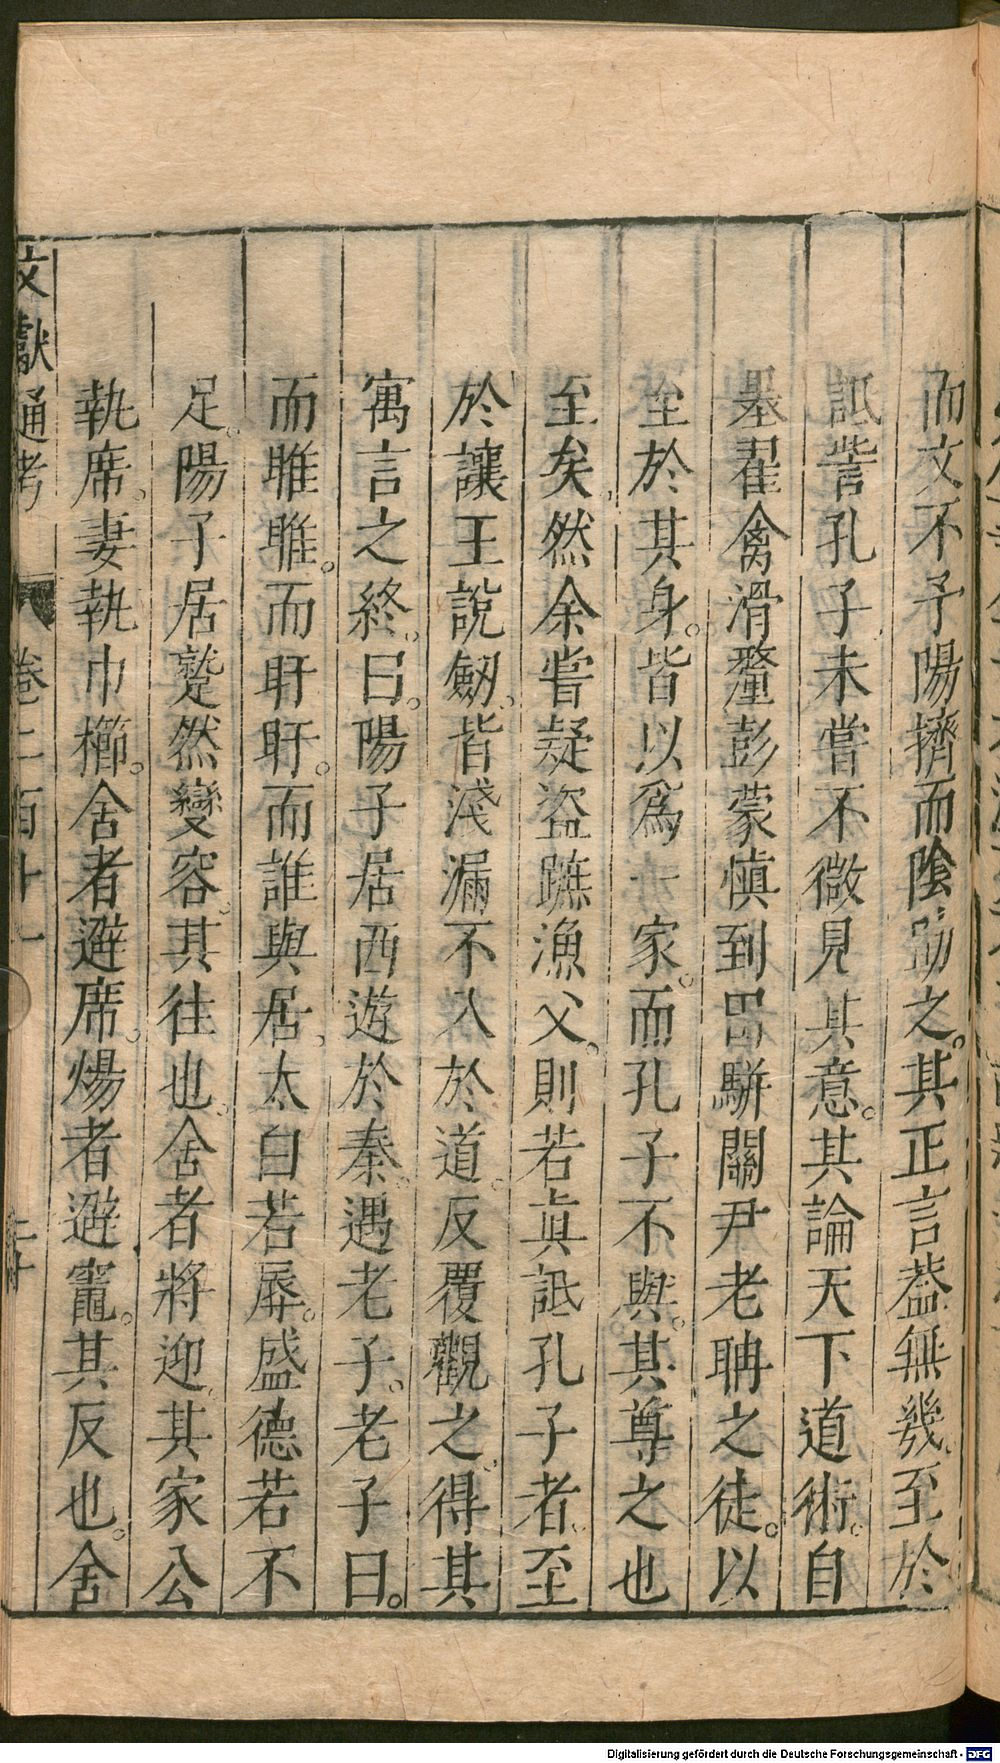 而文不予陽擠而陰助之。其正言葢無幾。至於
詆訾孔子未嘗不微見其意。其論天下道術。自
墨翟禽滑釐彭蒙慎到田駢關尹老聃之徒。以
至於其身。皆以爲一家。而孔子不與。其尊之也
至矣。然余嘗疑盜蹠漁父。則若眞詆孔子者。至
於讓王說劒。皆淺漏不入於道。反覆觀之。得其
寓言之終。曰。陽子居西遊於秦。遇老子。老子曰。
而睢睢。而盱盱。而誰與居。太白若辱。盛德若不
足。陽子居蹵然變容。其往也。舍者將迎。其家公
執席。妻執巾櫛。舍者避席。煬者避竈。其反也。舍
文獻通考 卷二百十一
Digitalisierung gefördert durch die Deutsche Forschungsgemeinschaft - DFG